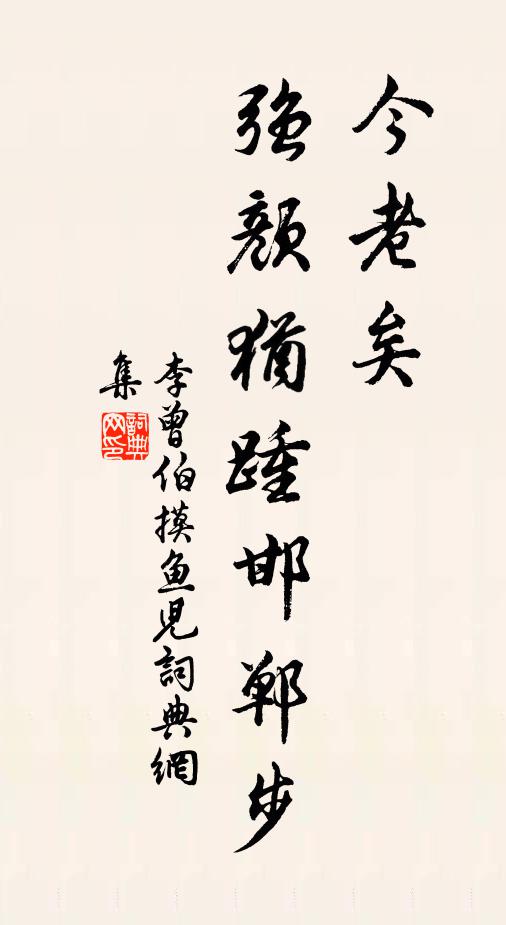 今老矣
强颜猶踵邯鄲步
李曾伯摸魚兒詞典網
集
詞典网印